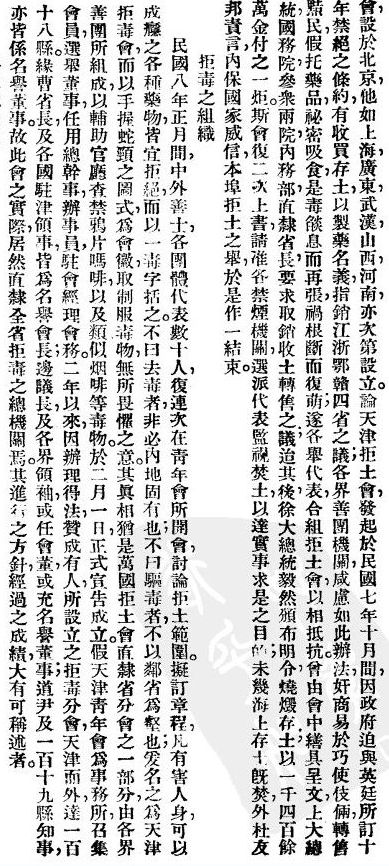 會設於北京他如上海廣東武漢山西河南亦次第設立論天津拒土會發起於民國七年十月間因政府迫與英廷所訂十
年禁絕之條約有收買存土以製藥名義指銷江浙鄂贛四省之議各界善團機關咸慮如此辦法奸商易於巧使伎倆轉售
黠民假托藥品祕密吸食是毒燄息而再張禍根斷而復萌遂各舉代表合組拒土會以相抵抗曾由會中繕具呈文上大總
統國務院參衆兩院內務部直隸省長要求取銷收土轉售之議迨其後徐大總統毅然頒布明令燒燬存土以一千四百餘
萬金付之一炬斯會復二次上書請准各禁煙機關選派代表監視焚土以達實事求是之目的未幾海上存土旣焚外杜友
邦責言內保國家威信本埠拒土之舉於是作一結束。
拒毒之組織
民國八年正月間中外善士各團體代表數十人復連次在青年會所開會討論拒土範圍擬訂章程凡有害人身可以
成癮之各種藥物皆宜拒絕而以一毒字括之不曰去毒者非必內地固有也不曰驅毒者不以鄰省爲壑也爰名之爲天津
拒毒會而以手握蛇頸之圖式爲會徽取制服毒物無所畏懼之意其眞相猶是萬國拒土會直隸省分會之一部分由各界
善團所組成以輔助官廳查禁鴉片嗎啡以及類似烟啡等毒物於二月一日正式宣告成立假天津靑年會爲事務所召集
會員選舉董事任用總幹事辦事員駐會經理會務二年以來因辦理得法贊成有人所設立之拒毒分會天津而外達一百
十八縣緣曹省長及各國駐津領事皆爲名譽會長邊議長及各界領袖或任會董或充名譽董事道尹及一百十九縣知事
亦皆係名譽董事故此會之實際居然直隸全省拒毒之總機關焉其進行之方針經過之成績大有可稱述者。